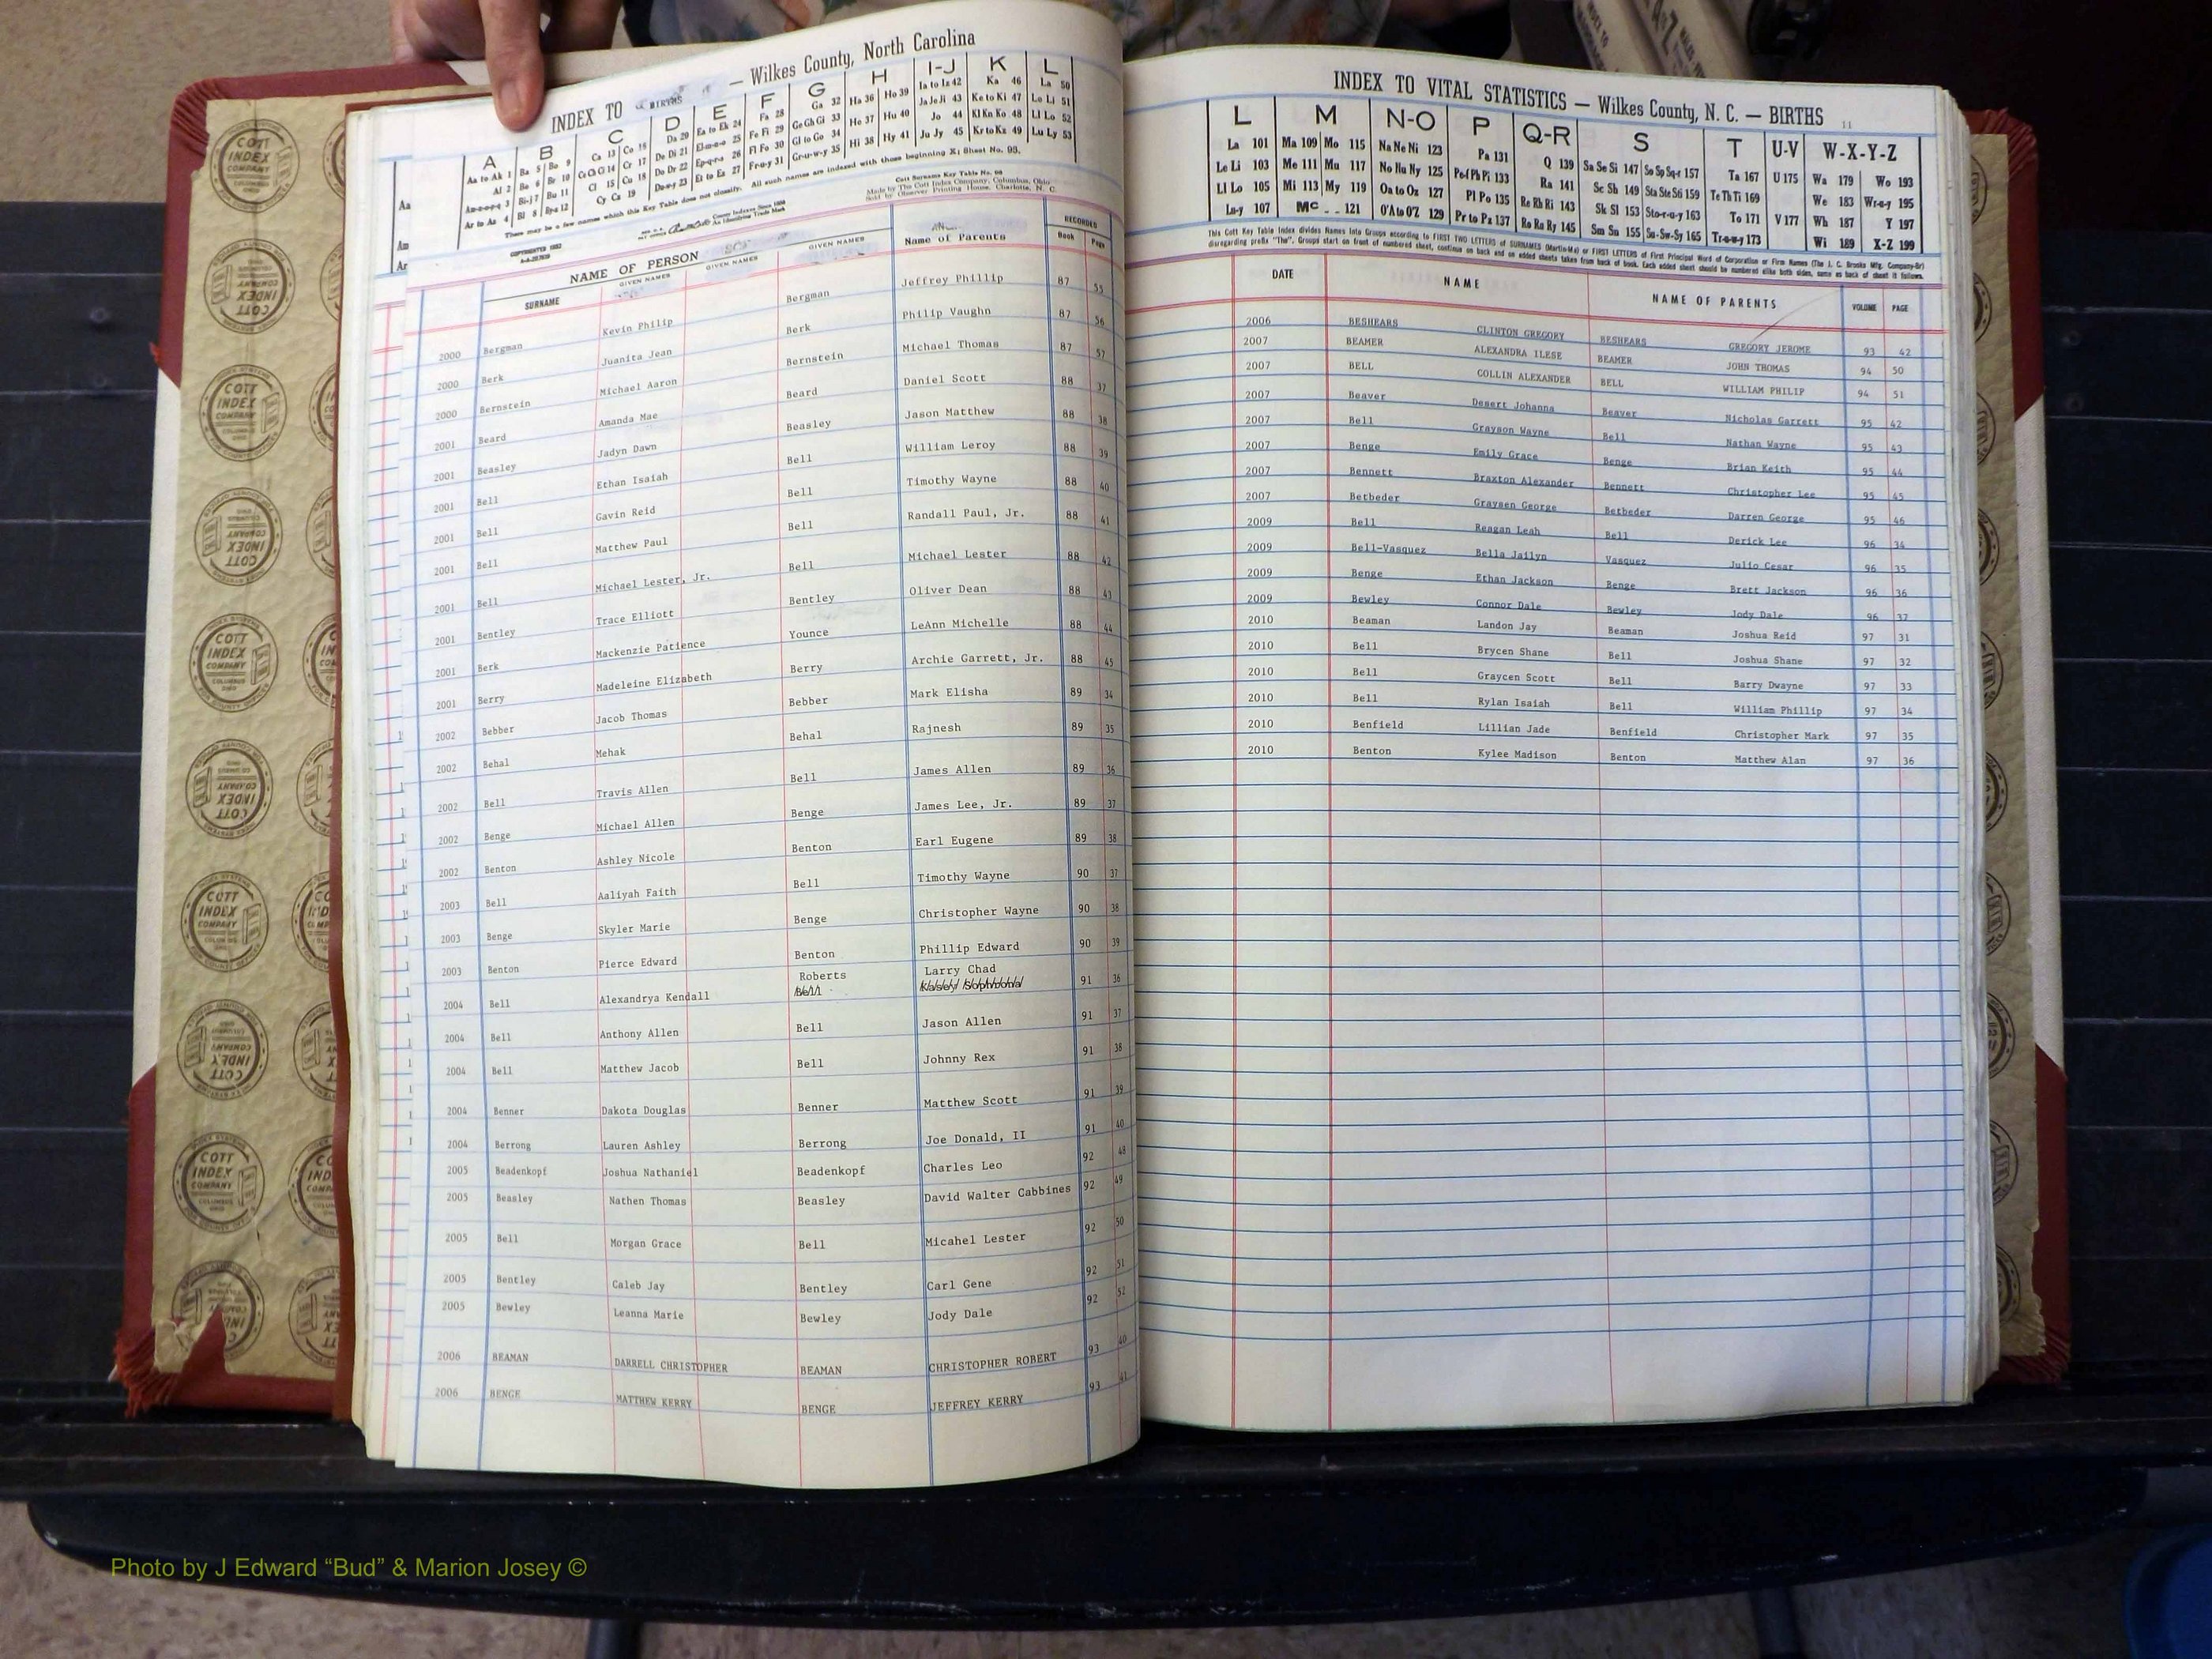 INDEX TO BIRTHS — Wilkes County, North Carolina
A B C D E F G H I-J K L
Aa to Ak 1 Ba 5 Be 9 Ca 13 Co 16 Da 20 Ea to Ek 24 Fa 28 Ga 32 Ha 36 Ho 39 Ia to Iz 42 Ka 46 La 50
Al 2 Br 10 Ce Ch Ci 14 Cr 17 De Di 21 El-m-n-o 25 Fe Fi 29 Ge Gh Gi 33 He 37 Hu 40 Ja Je Ji 43 Ke to Ki 47 Le Li 51
Bi-j 7 Bu 11 Cl 15 Cu 18 Do Dr 22 Ep-q-r-s 26 Fl Fo 30 Gl to Go 34 Hi 38 Hy 41 Jo 44 Kl Kn Ko 48 Ll Lo 52
Ar to Az 4 Bl 8 Cy Cz 19 Du-w-y 23 Et to Ez 27 Fr-u-y 31 Gr-u-w-y 35 Ju Jy 45 Kr to Kz 49 Lu Ly 53
There may be a few names which this Key Table does not classify. All such names are indexed with those beginning X; Sheet No. 93.
Made by The Cott Index Company, Columbus, Ohio
Sold by Observer Printing House, Charlotte, N. C.
Aa
Am
Ar
NAME OF PERSON
SURNAME GIVEN NAMES GIVEN NAMES GIVEN NAMES Name of Parents RECORDED Book Page
2000 Bergman Kevin Philip Bergman Jeffrey Phillip 87 55
2000 Berk Juanita Jean Berk Philip Vaughn 87 56
2000 Bernstein Michael Aaron Bernstein Michael Thomas 87 57
2001 Beard Amanda Mae Beard Daniel Scott 88 37
2001 Beasley Jadyn Dawn Beasley Jason Matthew 88 38
2001 Bell Ethan Isaiah Bell William Leroy 88 39
2001 Bell Gavin Reid Bell Timothy Wayne 88 40
2001 Bell Matthew Paul Bell Randall Paul, Jr. 88 41
2001 Bell Michael Lester, Jr. Bell Michael Lester 88 42
2001 Bentley Trace Elliott Bentley Oliver Dean 88 43
2001 Berk Mackenzie Patience Younce LeAnn Michelle 88 44
2001 Berry Madeleine Elizabeth Berry Archie Garrett, Jr. 88 45
2002 Bebber Jacob Thomas Bebber Mark Elisha 89 34
2002 Behal Mehak Behal Rajnesh 89 35
2002 Bell Travis Allen Bell James Allen 89 36
2002 Benge Michael Allen Benge James Lee, Jr. 89 37
2002 Benton Ashley Nicole Benton Earl Eugene 89 38
2003 Bell Aaliyah Faith Bell Timothy Wayne 90 37
2003 Benge Skyler Marie Benge Christopher Wayne 90 38
2003 Benton Pierce Edward Benton Phillip Edward 90 39
Roberts Larry Chad
2004 Bell Alexandrya Kendall Bell 91 36
2004 Bell Anthony Allen Bell Jason Allen 91 37
2004 Bell Matthew Jacob Bell Johnny Rex 91 38
2004 Benner Dakota Douglas Benner Matthew Scott 91 39
2004 Berrong Lauren Ashley Berrong Joe Donald, II 91 40
2005 Beadenkopf Joshua Nathaniel Beadenkopf Charles Leo 92 48
2005 Beasley Nathen Thomas Beasley David Walter Cabbines 92 49
2005 Bell Morgan Grace Bell Micahel Lester 92 50
2005 Bentley Caleb Jay Bentley Carl Gene 92 51
2005 Bewley Leanna Marie Bewley Jody Dale 92 52
2006 BEAMAN DARRELL CHRISTOPHER BEAMAN CHRISTOPHER ROBERT 93 40
2006 BENGE MATTHEW KERRY BENGE JEFFREY KERRY 93 41
INDEX TO VITAL STATISTICS — Wilkes County, N. C. — BIRTHS 11
L M N-O P Q-R S T U-V W-X-Y-Z
La 101 Ma 109 Mo 115 Na Ne Ni 123 Pa 131 Q 139 Sa Se Si 147 So Sp Sq-r 157 Ta 167 U 175 Wa 179 Wo 193
Le Li 103 Me 111 Mu 117 No Nu Ny 125 Pe-f Ph Pi 133 Ra 141 Sc Sh 149 Sta Ste Sti 159 Te Th Ti 169 We 183 Wr-u-y 195
Ll Lo 105 Mi 113 My 119 Oa to Oz 127 Pl Po 135 Re Rh Ri 143 Sk Sl 153 Sto-r-u-y 163 To 171 V 177 Wh 187 Y 197
Lu-y 107 Mc 121 O'A to O'Z 129 Pr to Pz 137 Ro Ru Ry 145 Sm Sn 155 Su-Sw-Sy 165 Tr-u-w-y 173 Wi 189 X-Z 199
This Cott Key Table Index divides Names into Groups according to FIRST TWO LETTERS of SURNAMES (Martin-Ma) or FIRST LETTERS of First Principal Word of Corporation or Firm Names (The J. C. Brooks Mfg. Company-Br)
disregarding prefix "The". Groups start on front of numbered sheet, continue on back and on added sheets taken from back of book. Each added sheet should be numbered alike both sides, same as back of sheet it follows.
DATE NAME NAME OF PARENTS VOLUME PAGE
2006 BESHEARS CLINTON GREGORY BESHEARS GREGORY JEROME 93 42
2007 BEAMER ALEXANDRA ILESE BEAMER JOHN THOMAS 94 50
2007 BELL COLLIN ALEXANDER BELL WILLIAM PHILIP 94 51
2007 Beaver Desert Johanna Beaver Nicholas Garrett 95 42
2007 Bell Grayson Wayne Bell Nathan Wayne 95 43
2007 Benge Emily Grace Benge Brian Keith 95 44
2007 Bennett Braxton Alexander Bennett Christopher Lee 95 45
2007 Betbeder Graysen George Betbeder Darren George 95 46
2009 Bell Reagan Leah Bell Derick Lee 96 34
2009 Bell-Vasquez Bella Jailyn Vasquez Julio Cesar 96 35
2009 Benge Ethan Jackson Benge Brett Jackson 96 36
2009 Bewley Connor Dale Bewley Jody Dale 96 37
2010 Beaman Landon Jay Beaman Joshua Reid 97 31
2010 Bell Brycen Shane Bell Joshua Shane 97 32
2010 Bell Graycen Scott Bell Barry Dwayne 97 33
2010 Bell Rylan Isaiah Bell William Phillip 97 34
2010 Benfield Lillian Jade Benfield Christopher Mark 97 35
2010 Benton Kylee Madison Benton Matthew Alan 97 36
COTT INDEX COMPANY
Photo by J Edward “Bud” & Marion Josey ©